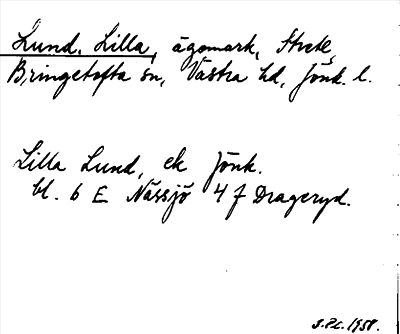 Lund, Lilla, ägomark, Strete,
Bringetofta sn, Västra hd, Jönk. l.
Lilla Lund, ek Jönk.
bl. 6 E Nässjö 4 f Drageryd.
1958.